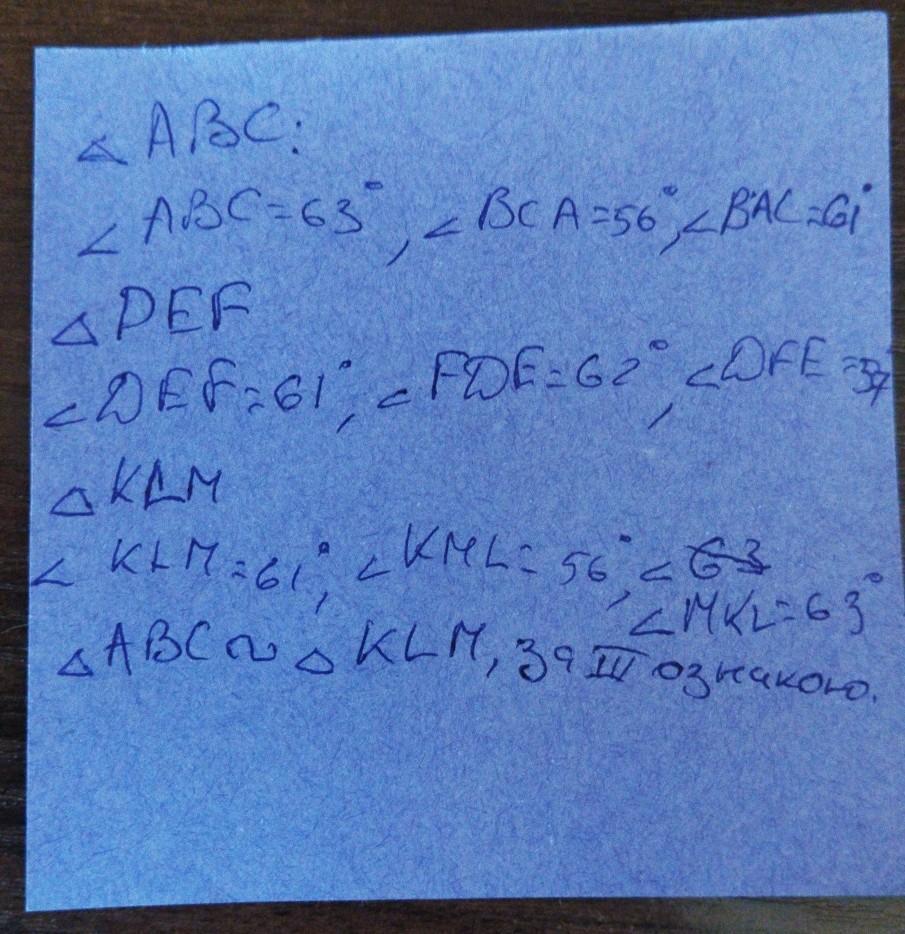 △ ABC:
∠ ABC=63°, ∠ BCA=56°, ∠BAC=61°
△ DEF
∠DEF=61°, ∠ FDE=62°, ∠DFE=57°
△ KLM
∠ KLM=61°, ∠KML=56°, ∠ 63
∠MKL=63°
△ABC ~ △ KLM, за III ознакою.